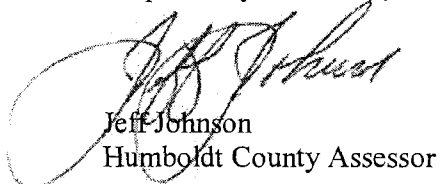 Jeff Johnson
Jeff Johnson
Humboldt County Assessor